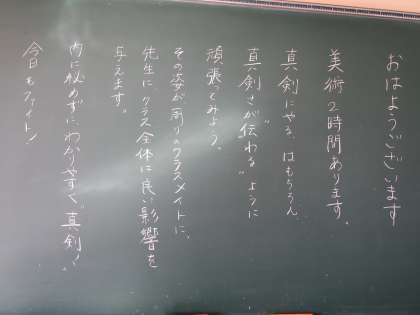 おはようございます
美術2時間あります。
真剣にやる、はもちろん
真剣さが“伝わる”ように
頑張ってみよう。
その姿が、周りのクラスメイトに、
先生に、クラス全体に良い影響を
与えます。
内に秘めずにわかりやすく、真剣に!
今日もファイト!